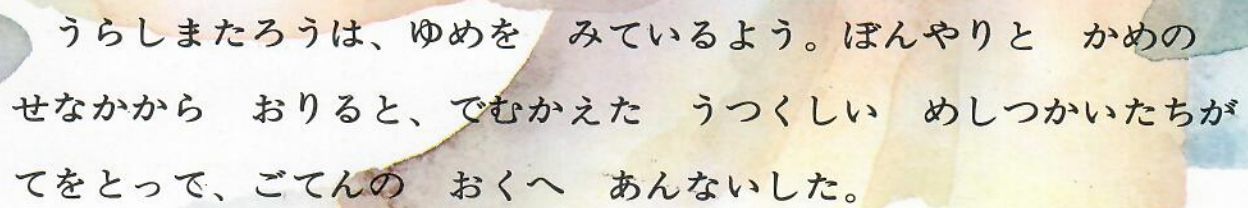 うらしまたろうは、ゆめを　みているよう。ぼんやりと　かめの
せなかから　おりると、でむかえた　うつくしい　めしつかいたちが
てをとって、ごてんの　おくへ　あんないした。